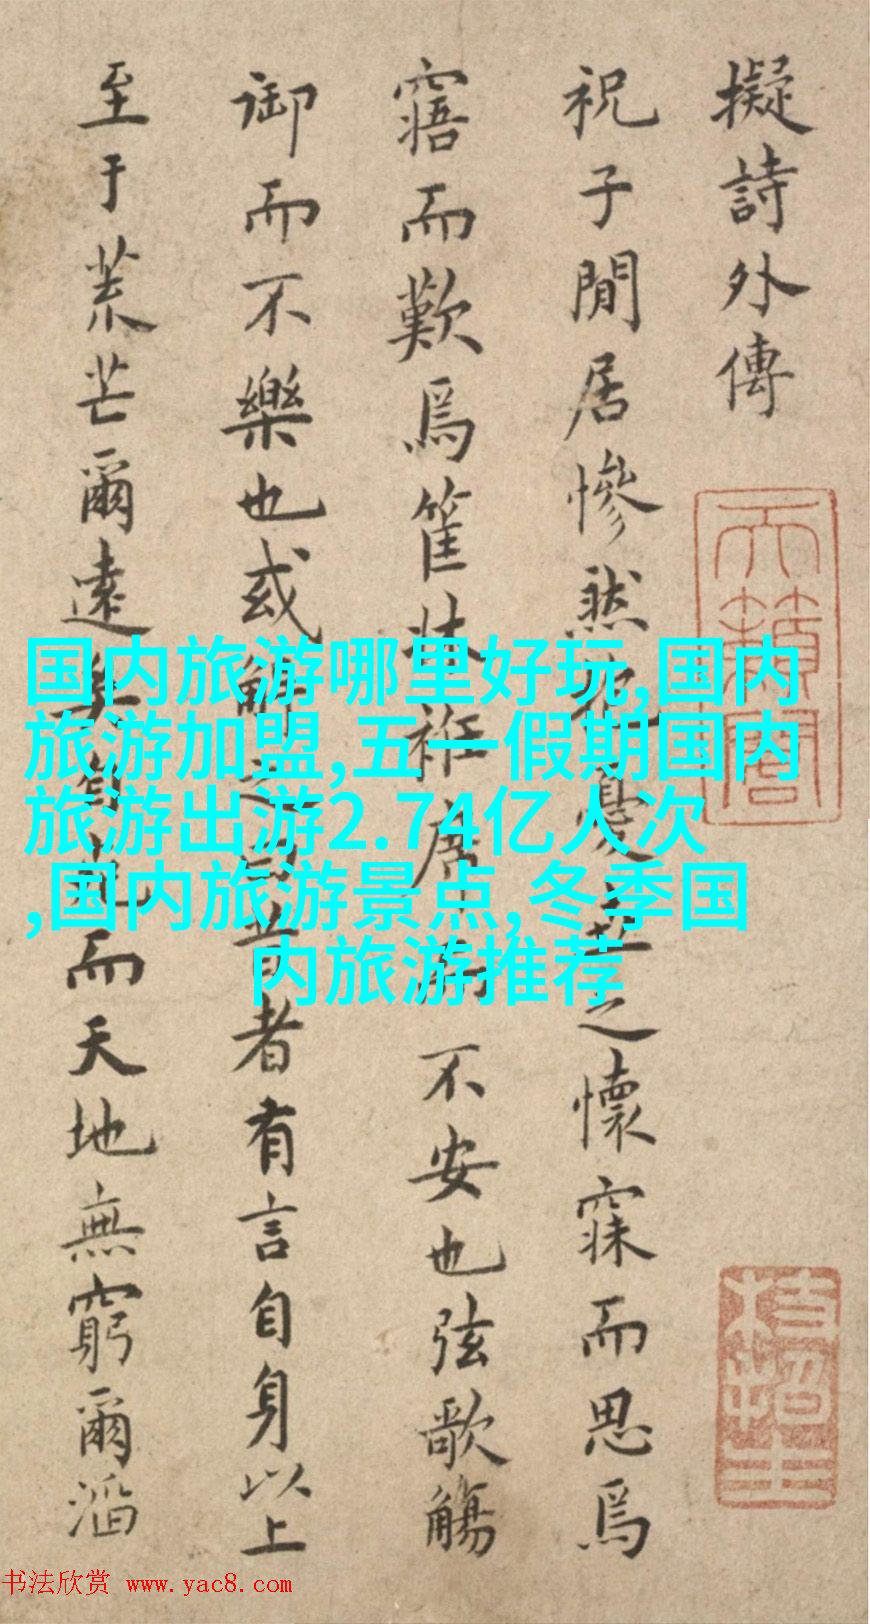 擬詩外傳
祝子閒居慘然
之懷寐而思爲
寤而歎爲筐牀衽席
不安也弦歌觴
御而不樂也或解之
昔者有言自身以上
至于荒芒爾遠矣
而天地無窮爾滔
国内旅游哪里好玩,国内
旅游加盟,五一假期国内
旅游出游2.74亿人次
,国内旅游景点,冬季国
内旅游推荐
天籟閣
书法欣赏 www.yac8.com